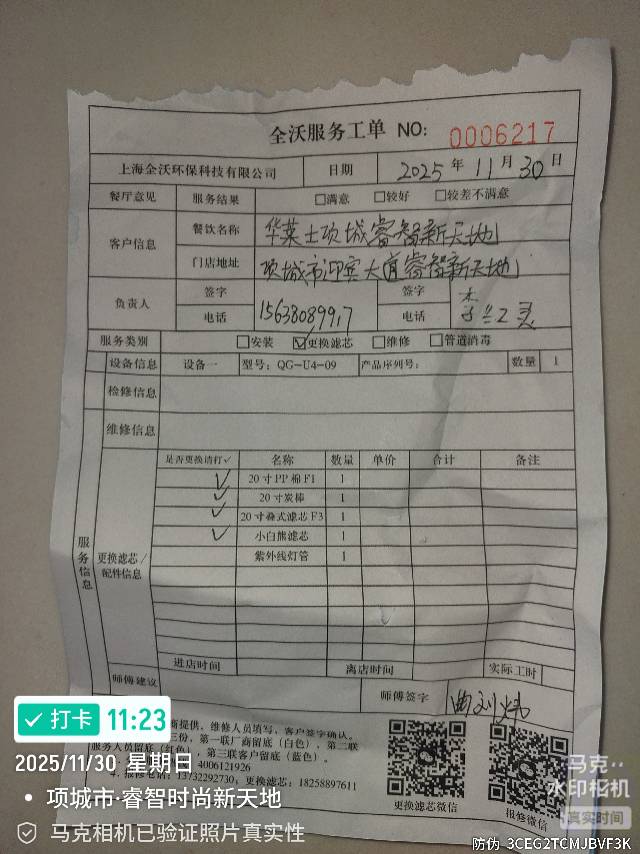 全沃服务工单 NO: 0006217
上海全沃环保科技有限公司 日期 2025 年 11 月 30 日
餐厅意见 服务结果 □满意 □较好 □较差不满意
客户信息 餐饮名称 华莱士项城睿智新天地
门店地址 项城市迎宾大道睿智新天地
负责人 签字 签字
电话 15638089917 电话
服务类别 □安装 ☑更换滤芯 □维修 □管道消毒
设备信息 设备一 型号: QG-U4-09 产品序列号: 数量 1
检修信息
维修信息
服务信息
更换滤芯/配件信息
是否更换请打✓ 名称 数量 单价 合计 备注
✓ 20寸PP棉F1 1
✓ 20寸炭棒 1
✓ 20寸叠式滤芯F3 1
✓ 小白熊滤芯 1
紫外线灯管 1
进店时间 离店时间 实际工时
师傅建议 师傅签字
商提供,维修人员填写,客户签字确认。
三份,第一联厂商留底(白色),第二联
服务人员留底(红色),第三联客户留底(蓝色)。
4006121926
4、报修电话: 13732292730, 更换滤芯: 18258897611
更换滤芯微信 报修微信
打卡 11:23
2025/11/30 星期日
项城市·睿智时尚新天地
马克相机已验证照片真实性
马克
水印相机
真实时间
防伪 3CEG2TCMJBVF3K